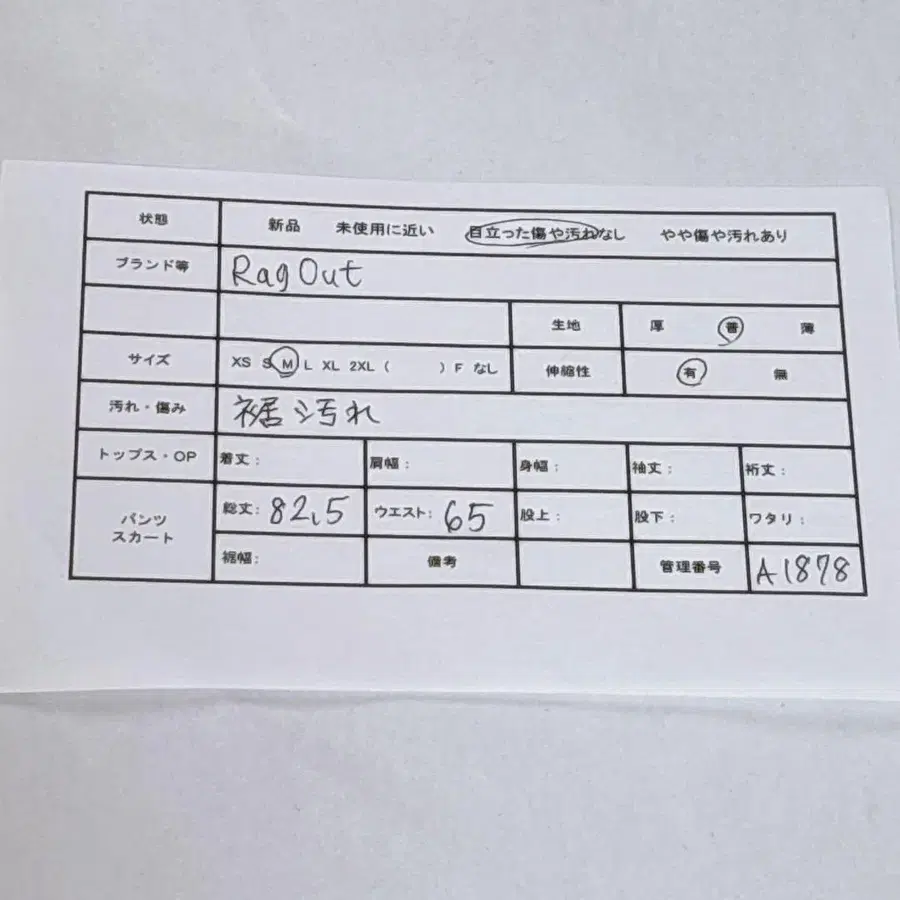 状態 新品 未使用に近い 目立った傷や汚れなし やや傷や汚れあり
ブランド等 Rag Out
生地 厚 普 薄
サイズ XS S M L XL 2XL ( ) F なし 伸縮性 有 無
汚れ・傷み 裾汚れ
トップス・OP 着丈: 肩幅: 身幅: 袖丈: 裄丈:
パンツ 総丈: 82,5 ウエスト: 65 股上: 股下: ワタリ:
スカート
裾幅: 備考 管理番号 A1878